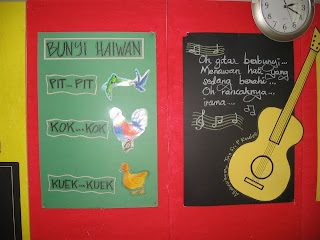 BUNYI HAIWAN
PIT-PIT
KOK-KOK
KUEK-KUEK
Oh gitar berbunyi...
Menawan hati yang
sedang berahi...
Oh rancaknya...
irama...